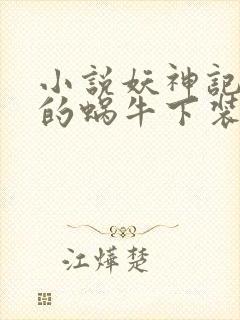 小説妖神記
的蝸牛下裝
江燁楚